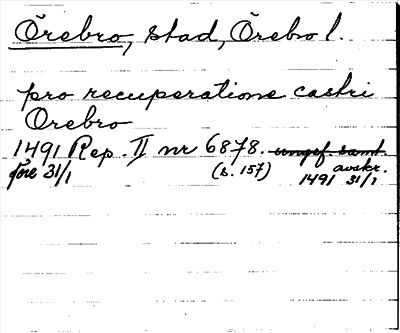 Örebro, stad, Örebro l.
pro recuperatione castri
Örebro
1491 Rep. II nr 6878. ungef. samt.
före 31/1 (s. 157) avskr.
1491 31/1